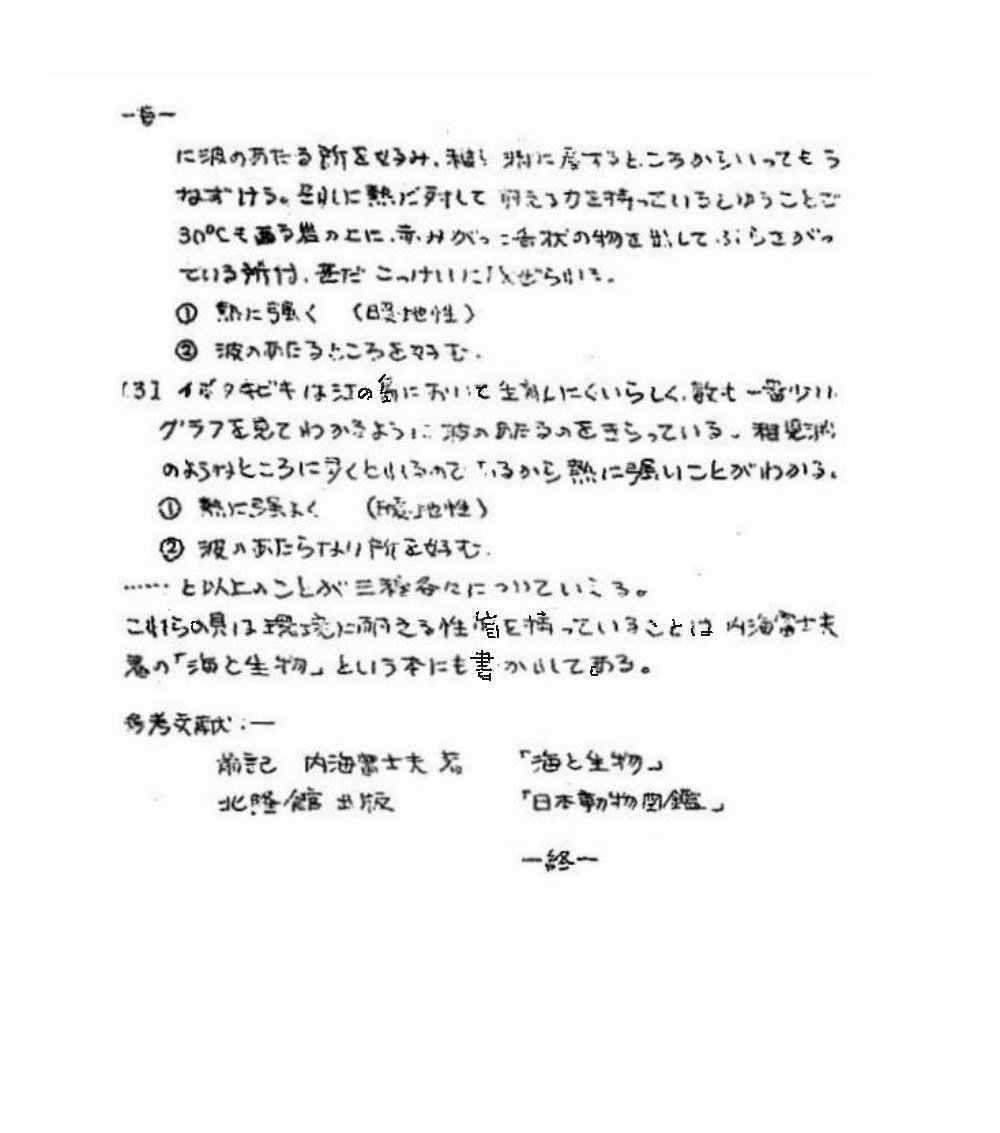 に波のあたる所を好み、稚児淵に産するところからいってもう
ねずける。則に熱に対して耐える力を持っているとゆうことで
30°Cもある岩の上に、赤みがった舌状の物を出してぶらさがっ
ている所は、甚だこっけいに感ぜられる。
① 熱に強く （暖地性）
② 波のあたるところを好む.
[3] イボタキビキは江の島において生育しにくいらしく、数も一番少い.
グラフを見てわかるように波のあたるのをきらっている。稚児淵
のようなところに多くとれるので いるから熱に強いことがわかる.
① 熱に強よく （暖地性）
② 波のあたらない所を好む.
…… と以上のことが三種各々についていえる。
これらの貝は環境に耐える性質を持っていることは内海富士夫
著の「海と生物」という本にも書かれてある。
参考文献：—
前記 内海富士夫著 「海と生物」
北隆館出版 「日本動物図鑑」
—終—